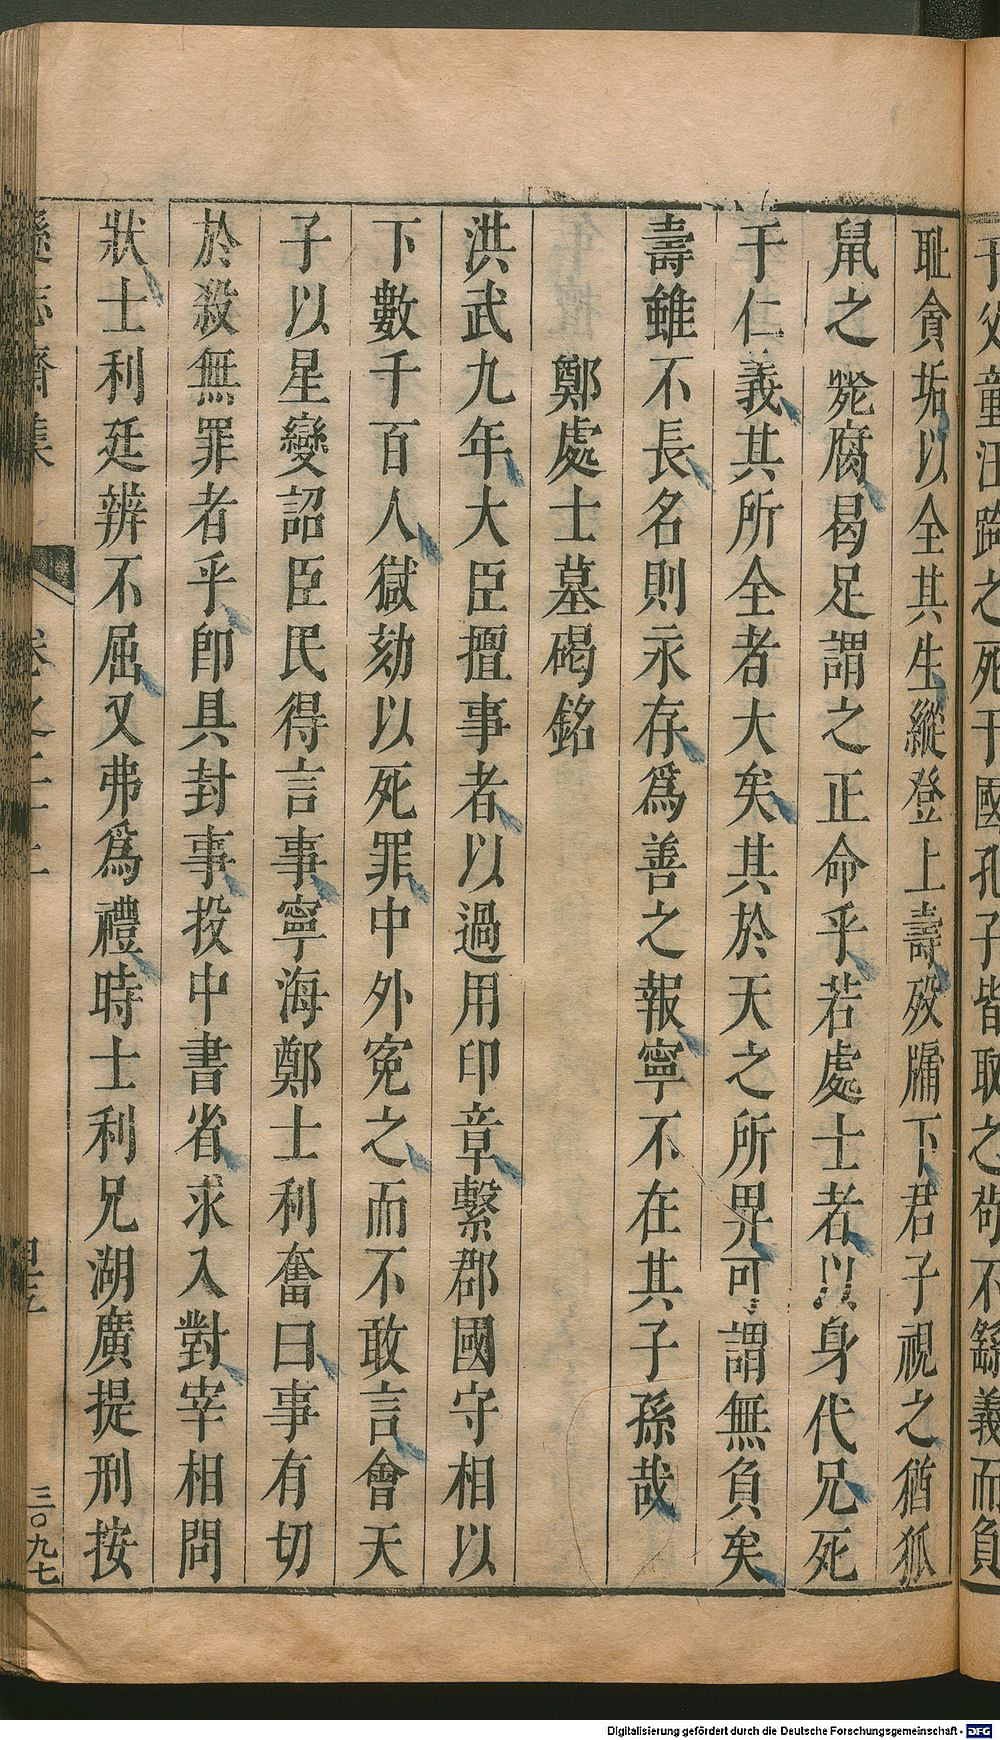 于父童汪踦之死于國孔子皆取之苟不繇義而負
耻貪垢以全其生縱登上壽歿牖下君子視之猶狐
鼠之斃腐曷足謂之正命乎若處士者以身代兄死
于仁義其所全者大矣其於天之所畀可謂無負矣
壽雖不長名則永存爲善之報寧不在其子孫哉
鄭處士墓碣銘
洪武九年大臣擅事者以過用印章繫郡國守相以
下數千百人獄劾以死罪中外寃之而不敢言會天
子以星變詔臣民得言事寧海鄭士利奮曰事有切
於殺無罪者乎卽具封事投中書省求入對宰相問
狀士利廷辨不屈又弗爲禮時士利兄湖廣提刑按
遜志齋集
卷之二十二
三〇九七
Digitalisierung gefördert durch die Deutsche Forschungsgemeinschaft - DFG